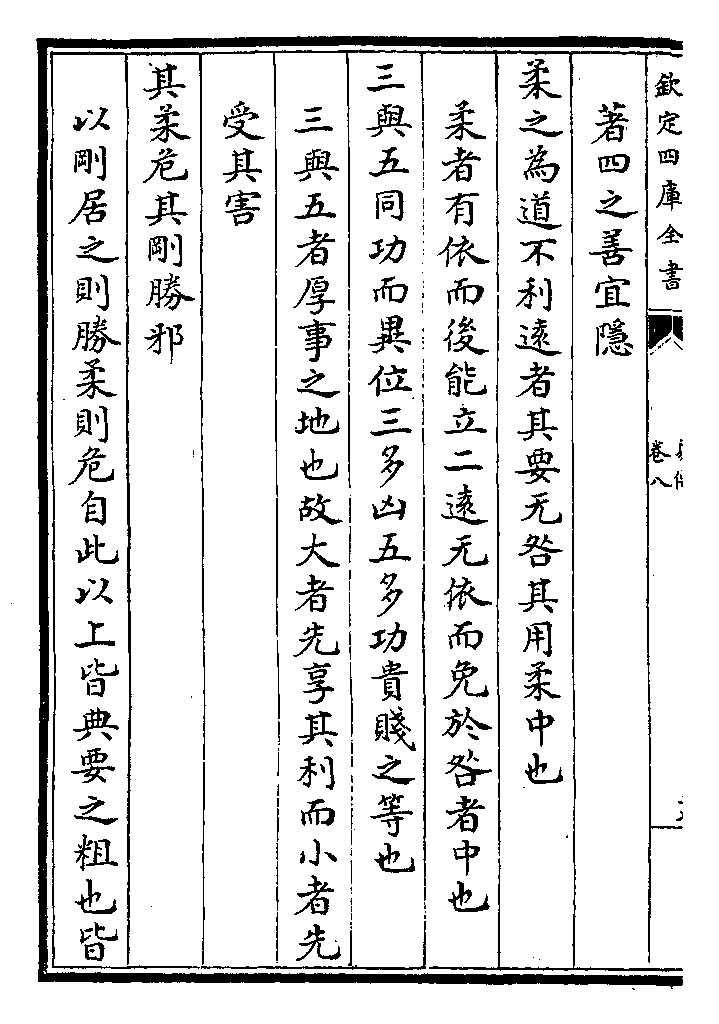 欽定四庫全書
卷八
著四之善宜隱
柔之為道不利遠者其要无咎其用柔中也
柔者有依而後能立二遠无依而免於咎者中也
三與五同功而異位三多凶五多功貴賤之等也
三與五者厚事之地也故大者先享其利而小者先
受其害
其柔危其剛勝邪
以剛居之則勝柔則危自此以上皆典要之粗也皆